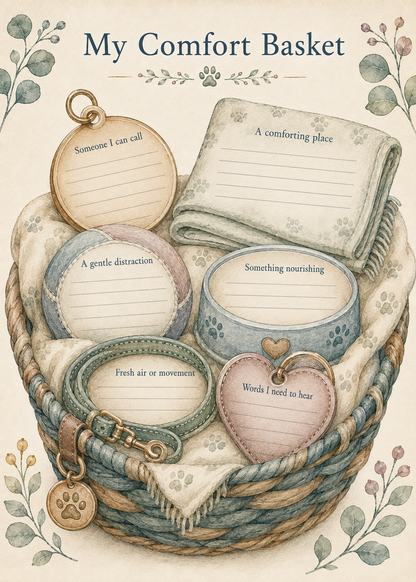 My Comfort Basket
Someone I can call
A comforting place
A gentle distraction
Something nourishing
Fresh air or movement
Words I need to hear